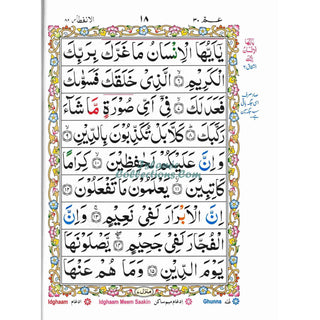 الانفطار ٨٢ ١٨ عـم ٣٠
يٰۤاَيُّهَا الۡاِنۡسَانُ مَا غَرَّكَ بِرَبِّكَ
الۡكَرِيۡمِ ۙ‏﴿۶﴾ الَّذِىۡ خَلَقَكَ فَسَوّٰٮكَ
فَعَدَلَكَ ۙ‏﴿۷﴾ فِىۡۤ اَىِّ صُوۡرَةٍ مَّا شَآءَ
رَكَّبَكَ ؕ‏﴿۸﴾ كَلَّا بَلۡ تُكَذِّبُوۡنَ بِالدِّيۡنِ ۙ‏﴿۹﴾
وَاِنَّ عَلَيۡكُمۡ لَحٰـفِظِيۡنَ ۙ‏﴿۱۰﴾ كِرَامًا
كَاتِبِيۡنَ ۙ‏﴿۱۱﴾ يَعۡلَمُوۡنَ مَا تَفۡعَلُوۡنَ‏﴿۱۲﴾
اِنَّ الۡاَبۡرَارَ لَفِىۡ نَعِيۡمٍ ۚ‏﴿۱۳﴾ وَاِنَّ
الۡفُجَّارَ لَفِىۡ جَحِيۡمٍ ۚ ۖ‏﴿۱۴﴾ يَّصۡلَوۡنَهَا
يَوۡمَ الدِّيۡنِ‏﴿۱۵﴾ وَمَا هُمۡ عَنۡهَا
منزل ٧
Idghaam ادغام Idghaam Meem Saakin ادغام میم ساکن Ghunna غنہ